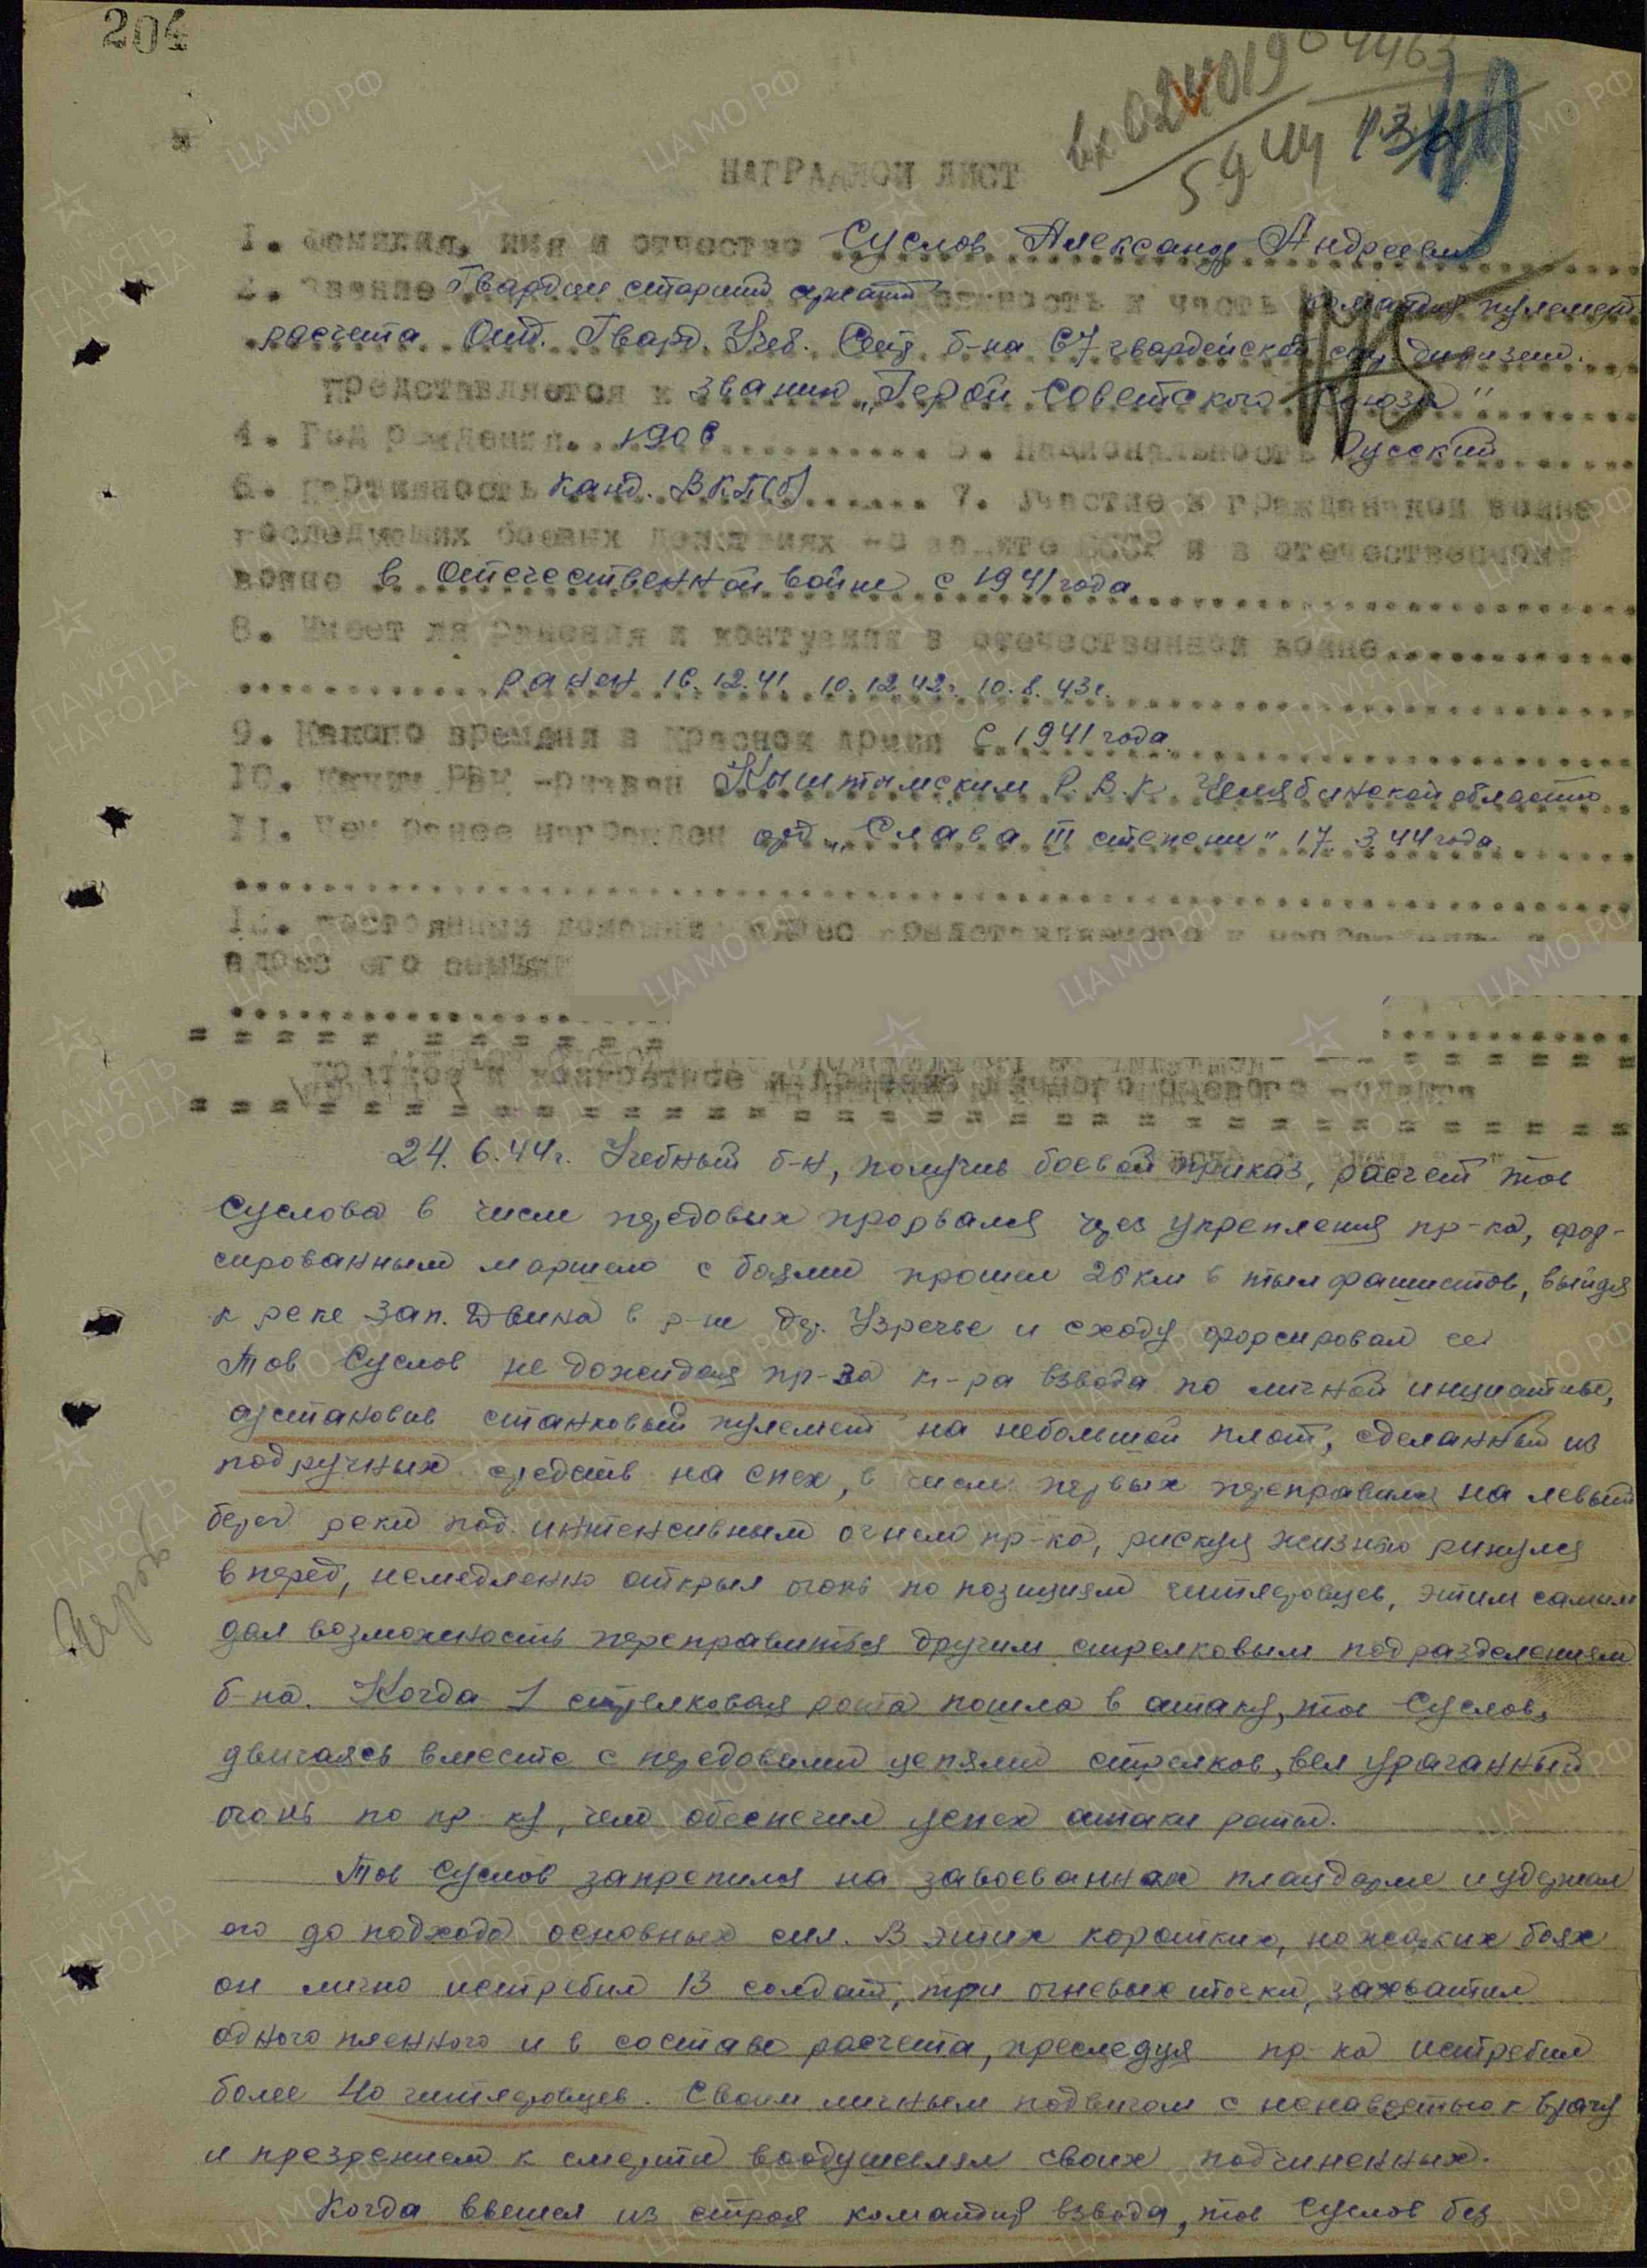 204
вх 024019
5 9 44
НАГРАДНОЙ ЛИСТ
1. Фамилия, имя и отчество Суслов Александр Андреевич
2. Звание Гвардии старший сержант должность и часть командир пулемет.
расчета Отд. Гвард. Учеб. Стр б-на 67 гвардейской стр. дивизии.
представляется к званию „Герой Советского Союза"
4. Год рождения 1906 5. Национальность Русский
6. Партийность канд. ВКП(б) 7. Участие в гражданской войне
последующих боевых действиях по защите СССР и в отечественной
войне в Отечественной войне с 1941 года
8. Имеет ли ранения и контузии в отечественной войне
ранен 16.12.41 10.12.42г. 10.8.43г.
9. Какого времени в Красной Армии с 1941 года
10. Каким РВК призван Кыштымским Р.В.К. Челябинской области
11. Чем ранее награжден орд. „Слава III степени" 17.3.44 года.
12. Постоянный домашний адрес представляемого к награждению и
адрес его семьи
Краткое и конкретное изложение личного боевого подвига
24.6.44г. Учебный б-н, получив боевой приказ, расчет тов
Суслова в числе передовых прорвался через укрепления пр-ка, фор-
сированным маршем с боями прошел 25 км в тыл фашистов, выйдя
к реке Зап. Двина в р-не дер. Узречье и сходу форсировал ее.
Тов Суслов не дожидая пр-за к-ра взвода по личной инициативе,
установив станковый пулемет на небольшой плот, сделанный из
подручных средств на спех, в числе первых переправился на левый
берег реки под интенсивным огнем пр-ка, рискуя жизнью ринулся
в перед, немедленно открыл огонь по позициям гитлеровцев, этим самым
дал возможность переправиться другим стрелковым подразделениям
б-на. Когда 1 стрелковая рота пошла в атаку, тов Суслов,
двигаясь вместе с передовыми цепями стрелков, вел ураганный
огонь по пр-ку, чем обеспечил успех атаки роты.
Тов Суслов закрепился на завоеванном плацдарме и удержал
его до подхода основных сил. В этих коротких, но жарких боях
он лично истребил 13 солдат, три огневых точки, захватил
одного пленного и в составе расчета, преследуя пр-ка истребил
более 40 гитлеровцев. Своим личным подвигом с ненавистью к врагу
и презрением к смерти воодушевлял своих подчиненных.
Когда вышел из строя командир взвода, тов Суслов без